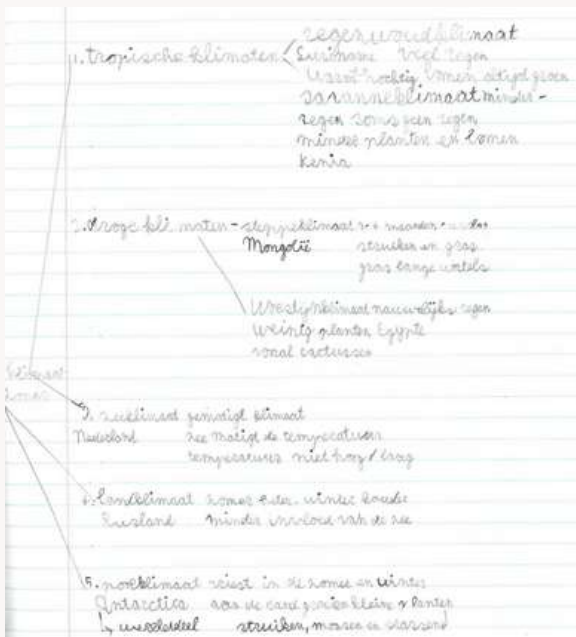 regenwoudklimaat
1. tropische klimaten Suriname veel regen
vochtig, bomen altijd groen
savanneklimaat minder -
regen soms geen regen
minder planten en bomen
Kenia
2. droge klimaten - steppeklimaat 2-4 maanden
Mongolië struiken en gras
gras lange wortels
Woestijnklimaat nauwelijks regen
weinig planten Egypte
cactussen
klimaat
zones
3. zeeklimaat gematigd klimaat
Nederland zee matigt de temperatuur
temperatuur niet hoog / laag
4. landklimaat zomer winter kouder
Rusland minder invloed van de zee
5. poolklimaat vriest in de zomer en winter
Antarctica aan de rand groeien kleine planten
↳ werelddeel struiken, mossen en